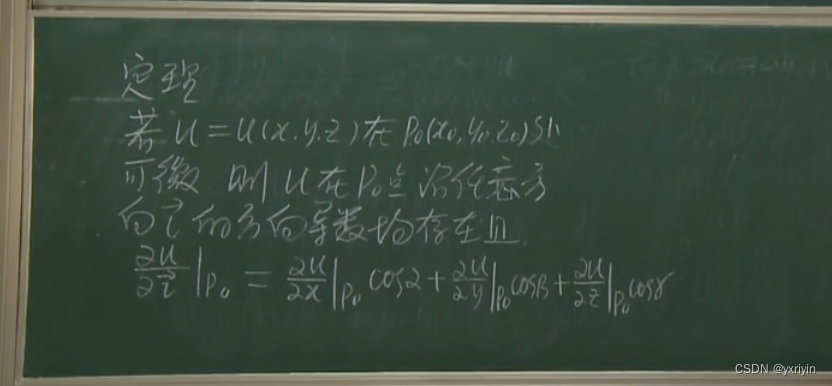 定理
若 u = u(x.y.z) 在 P₀(x₀,y₀,z₀) 处
可微 则 u 在 P₀点 沿任意方
向 l⃗ 的方向导数均存在且
∂u/∂l⃗ |P₀ = ∂u/∂x |P₀ cosα + ∂u/∂y |P₀ cosβ + ∂u/∂z |P₀ cosγ
CSDN @yxriyin